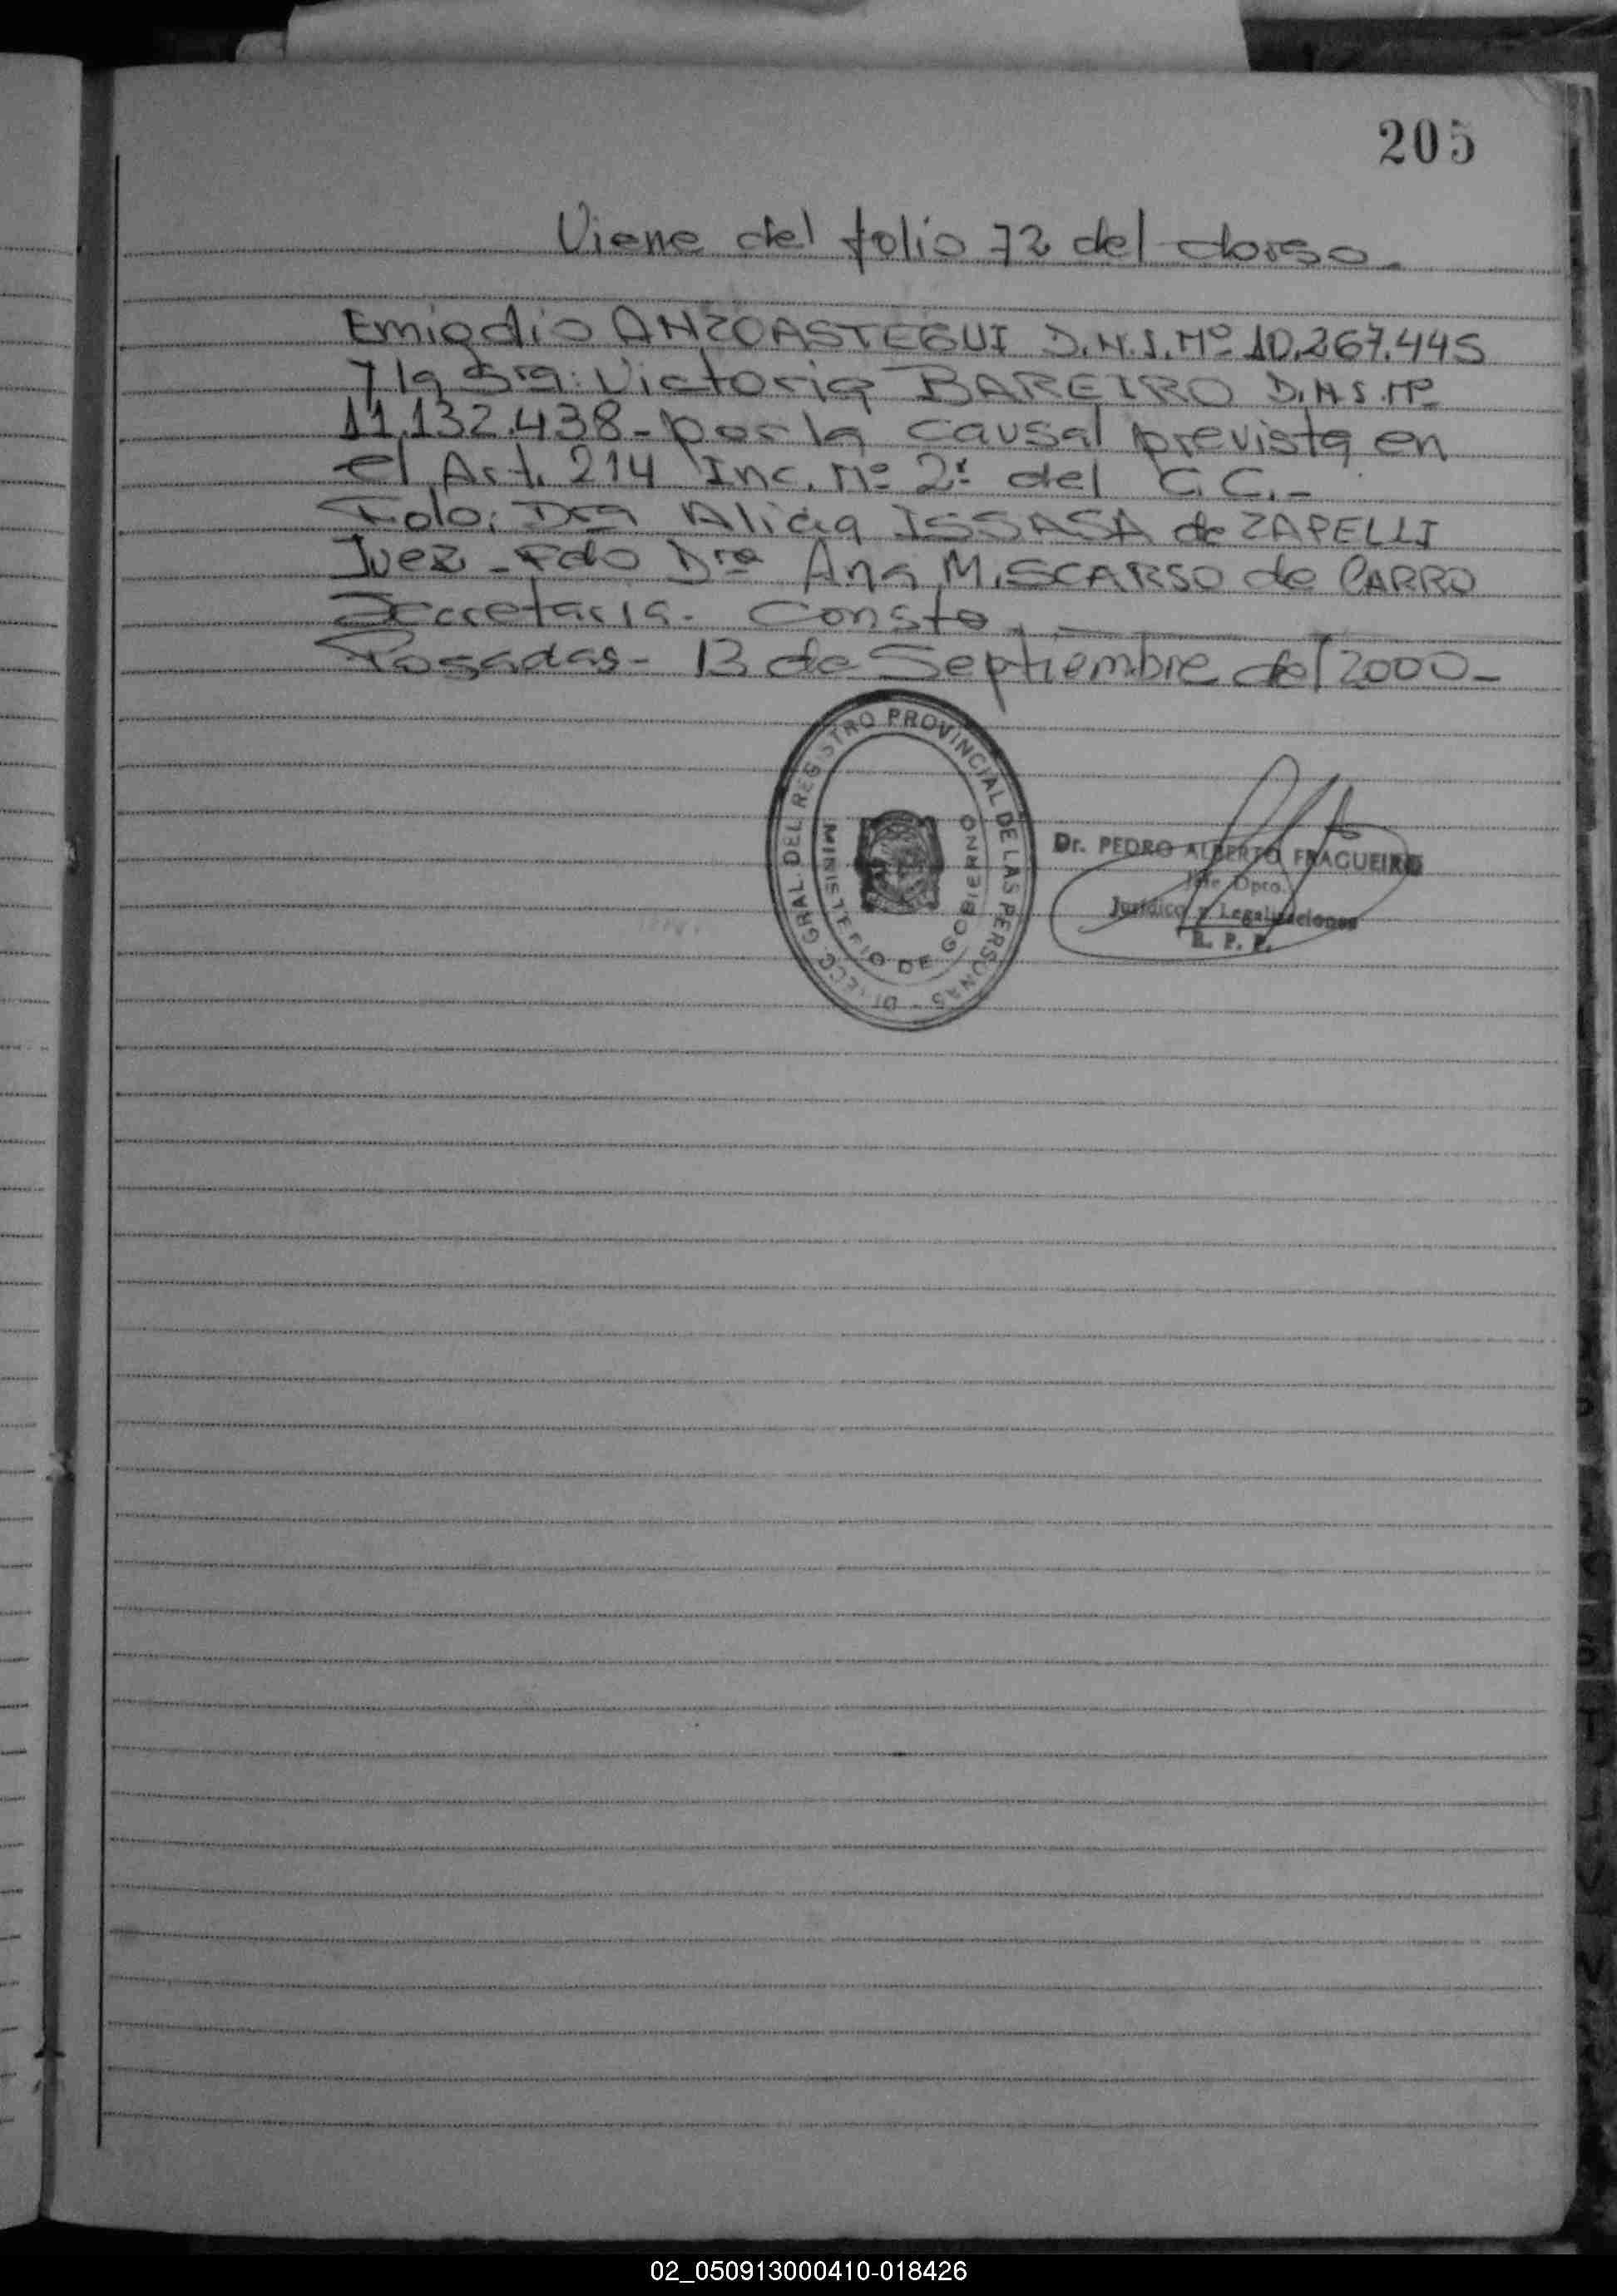 205
Viene del folio 72 del dorso.
Emigdio ANZOASTEGUI D.N.I. Nº 10.267.445
y la Sra: Victoria BAREIRO D.N.I. Nº
11.132.438 - por la causal prevista en
el Art. 214 Inc. Nº 2º del C.C. -
Fdo: Dra Alicia ISSASA de ZAPELLI
Juez - Fdo Dra Ana M. SCARSO de CARRO
Secretaria - Conste. -
Posadas - 13 de Septiembre del 2000 -
DIRECC. GRAL. DEL REGISTRO PROVINCIAL DE LAS PERSONAS -
MINISTERIO DE GOBIERNO
Dr. PEDRO ALBERTO FRAGUEIRO
Jefe Dpto.
Jurídico y Legalizaciones
R. P. P.
02_050913000410-018426